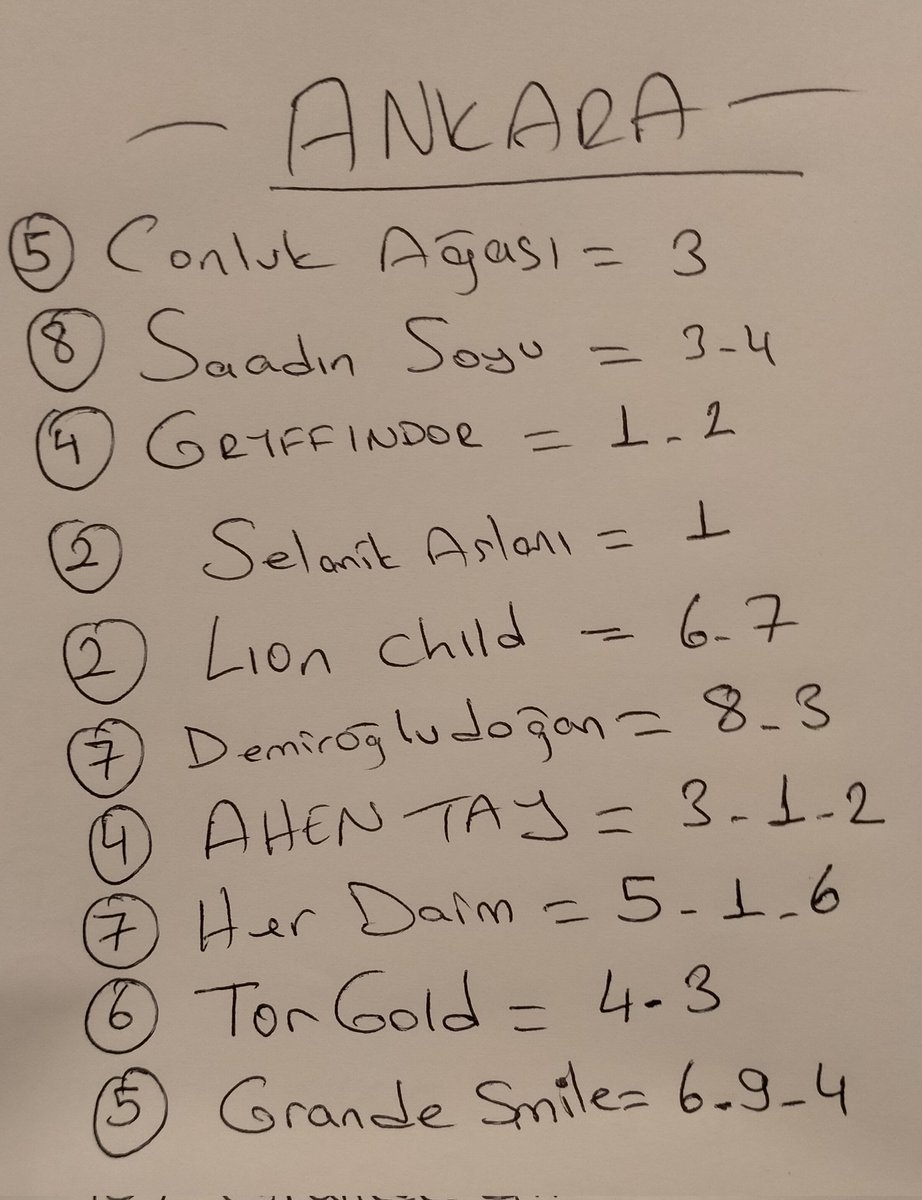 — ANKARA —
⑤ Conluk Ağası = 3
⑧ Saadın Soyu = 3-4
④ GRYFFINDOR = 1-2
② Selanik Aslanı = 1
② Lion child = 6-7
⑦ Demiroğludoğan = 8-3
④ AHEN TAY = 3-1-2
⑦ Her Daim = 5-1-6
⑥ Tor Gold = 4-3
⑤ Grande Smile = 6-9-4